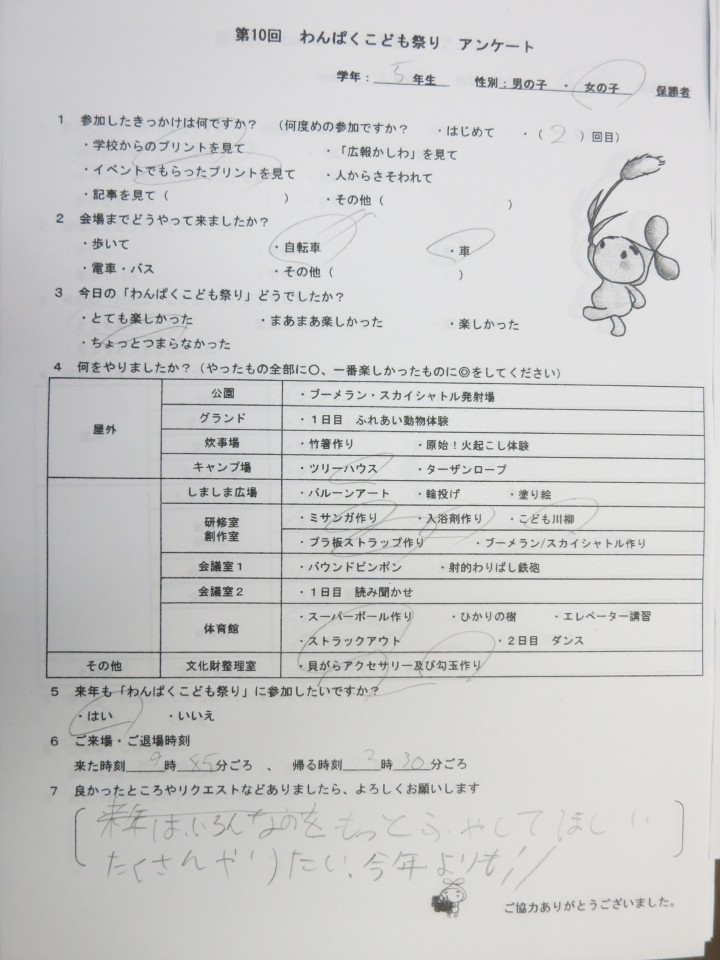 第10回 わんぱくこども祭り アンケート
学年：5年生 性別：男の子 ・ 女の子 保護者
1 参加したきっかけは何ですか？ （何度めの参加ですか？ ・はじめて ・（2）回目）
・学校からのプリントを見て ・「広報かしわ」を見て
・イベントでもらったプリントを見て ・人からさそわれて
・記事を見て（ ） ・その他（ ）
2 会場までどうやって来ましたか？
・歩いて ・自転車 ・車
・電車・バス ・その他（ ）
3 今日の「わんぱくこども祭り」どうでしたか？
・とても楽しかった ・まあまあ楽しかった ・楽しかった
・ちょっとつまらなかった
4 何をやりましたか？（やったもの全部に〇、一番楽しかったものに◎をしてください）
屋外 公園 ・ブーメラン・スカイシャトル発射場
グランド ・1日目 ふれあい動物体験
炊事場 ・竹箸作り ・原始！火起こし体験
キャンプ場 ・ツリーハウス ・ターザンロープ
しましま広場 ・バルーンアート ・輪投げ ・塗り絵
研修室 創作室 ・ミサンガ作り ・入浴剤作り ・こども川柳
・プラ板ストラップ作り ・ブーメラン/スカイシャトル作り
会議室1 ・バウンドピンポン ・射的わりばし鉄砲
会議室2 ・1日目 読み聞かせ
体育館 ・スーパーボール作り ・ひかりの樹 ・エレベーター講習
・ストラックアウト ・2日目 ダンス
その他 文化財整理室 ・貝がらアクセサリー及び勾玉作り
5 来年も「わんぱくこども祭り」に参加したいですか？
・はい ・いいえ
6 ご来場・ご退場時刻
来た時刻9時45分ごろ 、 帰る時刻3時30分ごろ
7 良かったところやリクエストなどありましたら、よろしくお願いします
来年は、いろんなのをもっとふやしてほしい
たくさんやりたい、今年よりも！！
ご協力ありがとうございました。